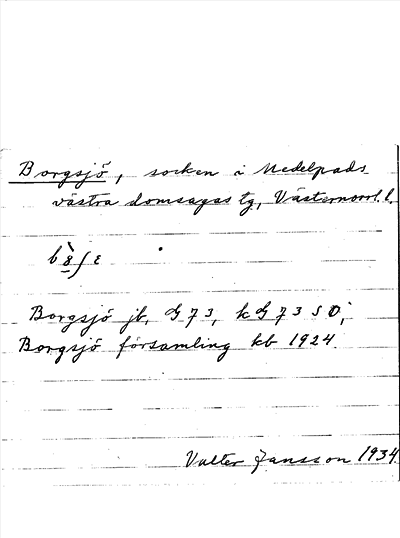 Borgsjö, socken i Medelpads
västra domsagas tg, Västernorrl. l.
Borgsjö jb, G 7 3, k G 7 3 S Ö;
Borgsjö församling kb 1924.
Valter Jansson 1934